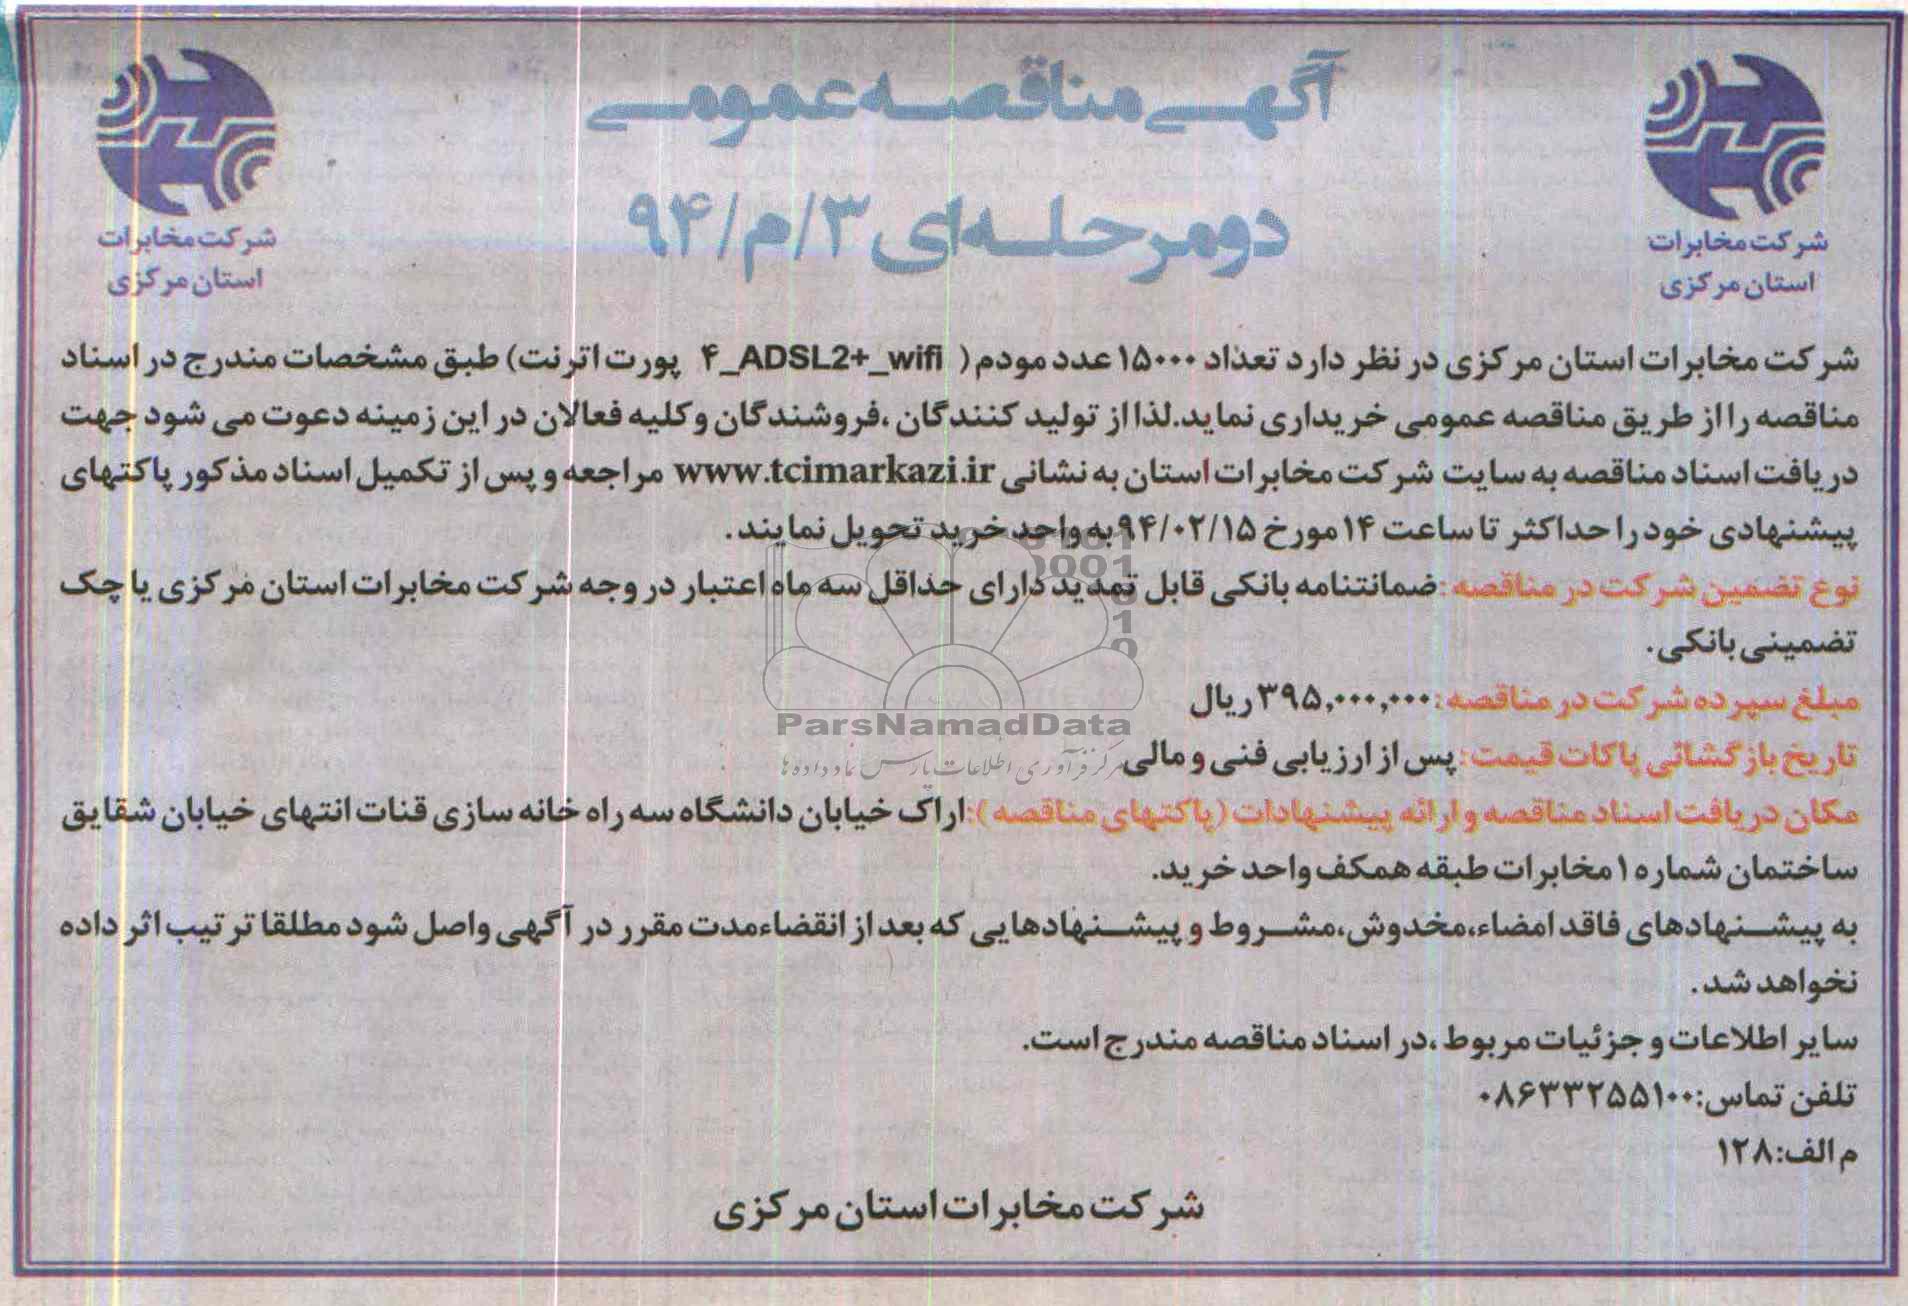 آگهی مناقصه عمومی
دومرحله‌ای ۳/م/۹۴
شرکت مخابرات
استان مرکزی
شرکت مخابرات
استان مرکزی
شرکت مخابرات استان مرکزی در نظر دارد تعداد ۱۵۰۰۰ عدد مودم ( ۴_ADSL2+_wifi پورت اترنت) طبق مشخصات مندرج در اسناد
مناقصه را از طریق مناقصه عمومی خریداری نماید.لذا از تولید کنندگان ،فروشندگان و کلیه فعالان در این زمینه دعوت می شود جهت
دریافت اسناد مناقصه به سایت شرکت مخابرات استان به نشانی www.tcimarkazi.ir مراجعه و پس از تکمیل اسناد مذکور پاکتهای
پیشنهادی خود را حداکثر تا ساعت ۱۴ مورخ ۹۴/۰۲/۱۵ به واحد خرید تحویل نمایند.
نوع تضمین شرکت در مناقصه :ضمانتنامه بانکی قابل تمدید دارای حداقل سه ماه اعتبار در وجه شرکت مخابرات استان مرکزی یا چک
تضمینی بانکی.
مبلغ سپرده شرکت در مناقصه :۳۹۵,۰۰۰,۰۰۰ ریال
تاریخ بازگشائی پاکات قیمت: پس از ارزیابی فنی و مالی
مکان دریافت اسناد مناقصه و ارائه پیشنهادات (پاکتهای مناقصه ):اراک خیابان دانشگاه سه راه خانه سازی قنات انتهای خیابان شقایق
ساختمان شماره ۱ مخابرات طبقه همکف واحد خرید.
به پیشنهادهای فاقد امضاء،مخدوش،مشروط و پیشنهادهایی که بعد از انقضاءمدت مقرر در آگهی واصل شود مطلقا ترتیب اثر داده
نخواهد شد.
سایر اطلاعات و جزئیات مربوط ،در اسناد مناقصه مندرج است.
تلفن تماس:۰۸۶۳۳۲۵۵۱۰۰
م الف:۱۲۸
شرکت مخابرات استان مرکزی
ParsNamadData
مرکز فرآوری اطلاعات پارس نماد داده ها